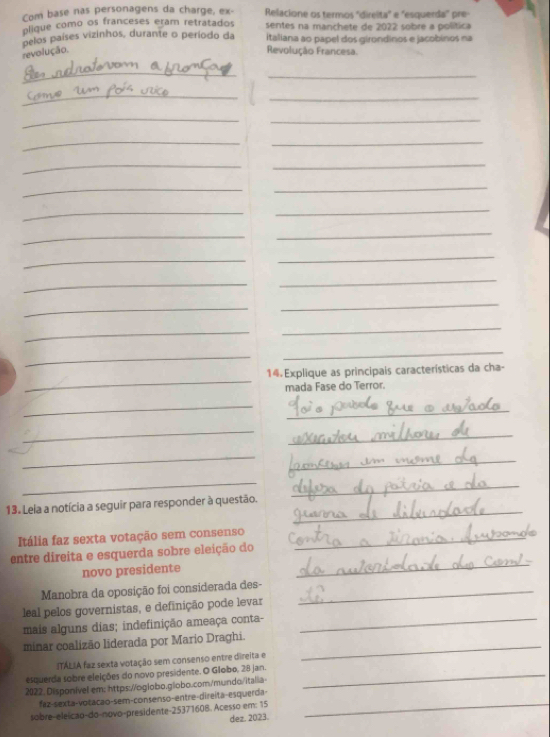 Com base nas personagens da charge, ex-
plique como os franceses eram retratados
pelos países vizinhos, durante o período da
revolução.
a França
como um país rico
13. Leia a notícia a seguir para responder à questão.
Itália faz sexta votação sem consenso
entre direita e esquerda sobre eleição do
novo presidente
Manobra da oposição foi considerada des-
leal pelos governistas, e definição pode levar
mais alguns dias; indefinição ameaça conta-
minar coalizão liderada por Mario Draghi.
ITÁLIA faz sexta votação sem consenso entre direita e
esquerda sobre eleições do novo presidente. O Globo, 28 jan.
2022. Disponível em: https://oglobo.globo.com/mundo/italia-
faz-sexta-votacao-sem-consenso-entre-direita-esquerda-
sobre-eleicao-do-novo-presidente-25371608. Acesso em: 15
dez. 2023.
Relacione os termos "direita" e "esquerda" pre-
sentes na manchete de 2022 sobre a política
italiana ao papel dos girondinos e jacobinos na
Revolução Francesa.
14. Explique as principais características da cha-
mada Fase do Terror.
foi o período que o estado
executou milhores de
franceses em nome da
defesa da pátria e da
guerra de liberdade
contra a tirania, durante
da autoridade do comi-
tê.